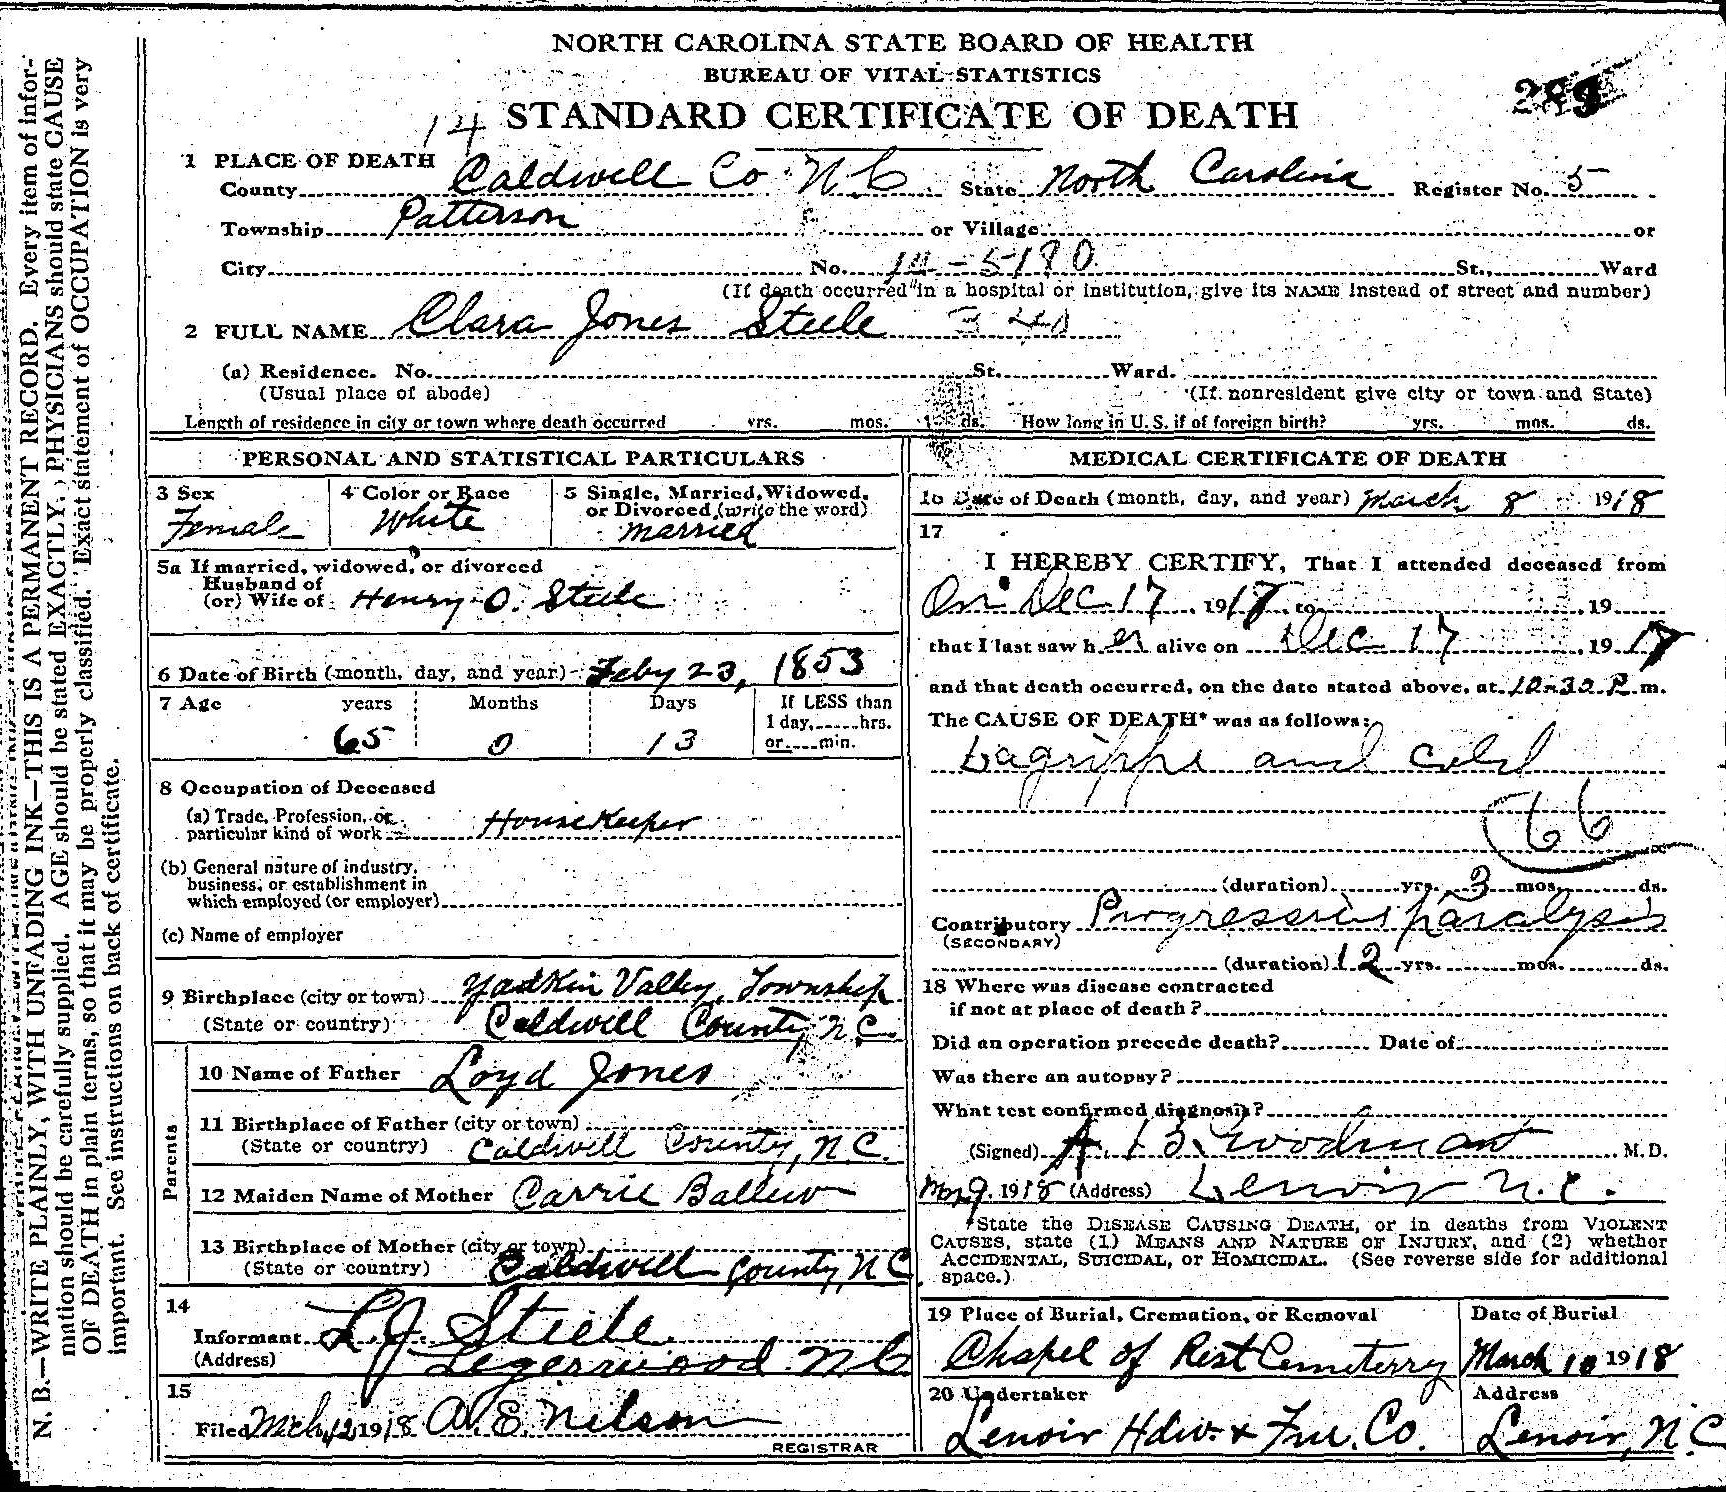 NORTH CAROLINA STATE BOARD OF HEALTH
BUREAU OF VITAL STATISTICS
STANDARD CERTIFICATE OF DEATH
14
1 PLACE OF DEATH
County Caldwell Co N.C. State North Carolina Register No. 5
Township Patterson or Village or
City No. 14-5180 St., Ward
(If death occurred in a hospital or institution, give its NAME instead of street and number)
2 FULL NAME Clara Jones Steele 340
(a) Residence. No. St. Ward.
(Usual place of abode) (If nonresident give city or town and State)
Length of residence in city or town where death occurred yrs. mos. ds. How long in U. S. if of foreign birth? yrs. mos. ds.
PERSONAL AND STATISTICAL PARTICULARS
3 Sex 4 Color or Race 5 Single, Married, Widowed,
or Divorced (write the word)
Female White Married
5a If married, widowed, or divorced
Husband of
(or) Wife of Henry O. Steele
6 Date of Birth (month, day, and year) Feby 23, 1853
7 Age years Months Days If LESS than
1 day, hrs.
65 0 13 or min.
8 Occupation of Deceased
(a) Trade, Profession, or
particular kind of work HouseKeeper
(b) General nature of industry,
business, or establishment in
which employed (or employer)
(c) Name of employer
9 Birthplace (city or town) Yadkin Valley, Township
(State or country) Caldwell County, N.C.
Parents
10 Name of Father Loyd Jones
11 Birthplace of Father (city or town)
(State or country) Caldwell County, N.C.
12 Maiden Name of Mother Carrie Ballew
13 Birthplace of Mother (city or town)
(State or country) Caldwell County, N C
14
Informant L. J. Steele
(Address) Legerwood N C
15
Filed Mch 12 1918 A. E. Nelson
REGISTRAR
MEDICAL CERTIFICATE OF DEATH
16 Date of Death (month, day, and year) March 8 1918
17
I HEREBY CERTIFY, That I attended deceased from
On Dec 17, 1917, to 19
that I last saw her alive on Dec 17, 1917
and that death occurred, on the date stated above, at 10-30 P. m.
The CAUSE OF DEATH* was as follows:
Lagrippe and cold
66
(duration) yrs. 3 mos. ds.
Contributory Progressive paralysis
(SECONDARY)
(duration) 12 yrs. mos. ds.
18 Where was disease contracted
if not at place of death?
Did an operation precede death? Date of
Was there an autopsy?
What test confirmed diagnosis?
(Signed) A. B. Goodman M. D.
Mar 9, 1918 (Address) Lenoir N.C.
*State the DISEASE CAUSING DEATH, or in deaths from VIOLENT
CAUSES, state (1) MEANS AND NATURE OF INJURY, and (2) whether
ACCIDENTAL, SUICIDAL, or HOMICIDAL. (See reverse side for additional
space.)
19 Place of Burial, Cremation, or Removal Date of Burial
Chapel of Rest Cemeterry March 10 1918
20 Undertaker Address
Lenoir Hdw. & Fur. Co. Lenoir, N.C.
N. B.—WRITE PLAINLY, WITH UNFADING INK—THIS IS A PERMANENT RECORD. Every item of infor-
mation should be carefully supplied. AGE should be stated EXACTLY. PHYSICIANS should state CAUSE
OF DEATH in plain terms, so that it may be properly classified. Exact statement of OCCUPATION is very
important. See instructions on back of certificate.